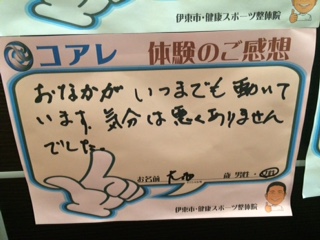 伊東市・健康スポーツ整体院
コアレ 体験のご感想
おなかが いつまでも動いて
います。気分は悪くありません
でした。
お名前 歳 男性・女性
伊東市・健康スポーツ整体院